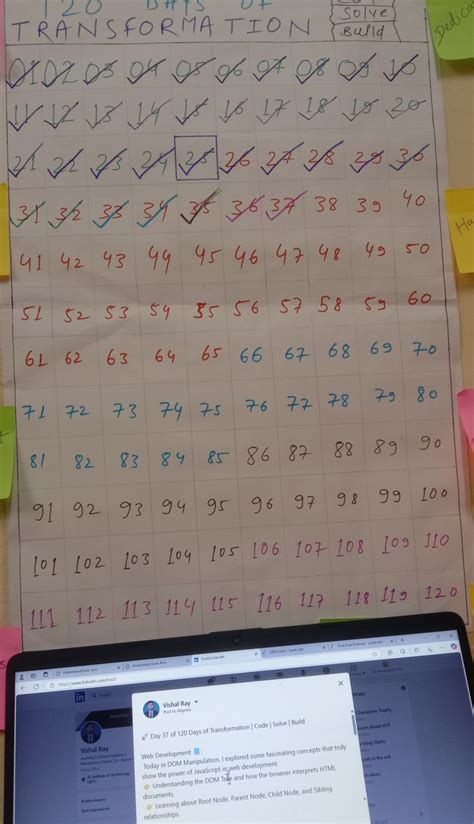 120 DAYS OF
TRANSFORMATION
Solve
Build
01 02 03 04 05 06 07 08 09 10
11 12 13 14 15 16 17 18 19 20
21 22 23 24 25 26 27 28 29 30
31 32 33 34 35 36 37 38 39 40
41 42 43 44 45 46 47 48 49 50
51 52 53 54 55 56 57 58 59 60
61 62 63 64 65 66 67 68 69 70
71 72 73 74 75 76 77 78 79 80
81 82 83 84 85 86 87 88 89 90
91 92 93 94 95 96 97 98 99 100
101 102 103 104 105 106 107 108 109 110
111 112 113 114 115 116 117 118 119 120
Vishal Ray
Post to Anyone
🚀 Day 37 of 120 Days of Transformation | Code | Solve | Build
Web Development 🌐:
Today in DOM Manipulation, I explored some fascinating concepts that truly
show the power of JavaScript in web development.
👉 Understanding the DOM Tree and how the browser interprets HTML
documents.
👉 Learning about Root Node, Parent Node, Child Node, and Sibling
relationships.
Vishal Ray